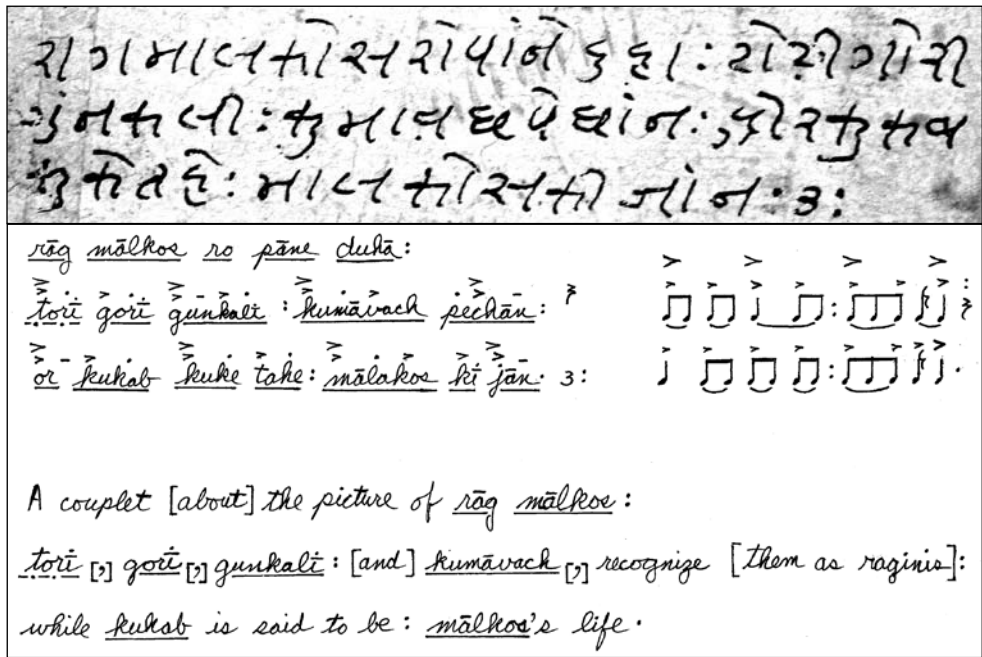 रागमालकोसरोपांनेदुहा:टोरीगोरी
गुंनकली:कुमावछपेछांन:ओरकुकब
कुकेतहे:मालकोसकीजांन:३:
rāg mālkos ro pāne duhā:
torī gorī gunkalī : kumāvach pechān:
or kukab kuke tahe: mālakos kī jān. 3:
A couplet [about] the picture of rāg mālkos:
torī [,] gorī [,] gunkalī: [and] kumāvach [,] recognize [them as raginis]:
while kukab is said to be: mālkos's life.